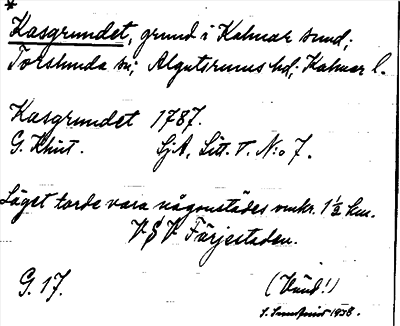 *
Kasgrundet, grund i Kalmar sund;
Torslunda sn; Algutsrums hd; Kalmar l.
Kasgrundet 1787.
G. Klint. SjA, Litt. T. N:o 7.
Läget torde vara någonstädes omkr. 1½ km.
VSV Färjestaden.
G. 17.
(Vänd!)
S. 1938.